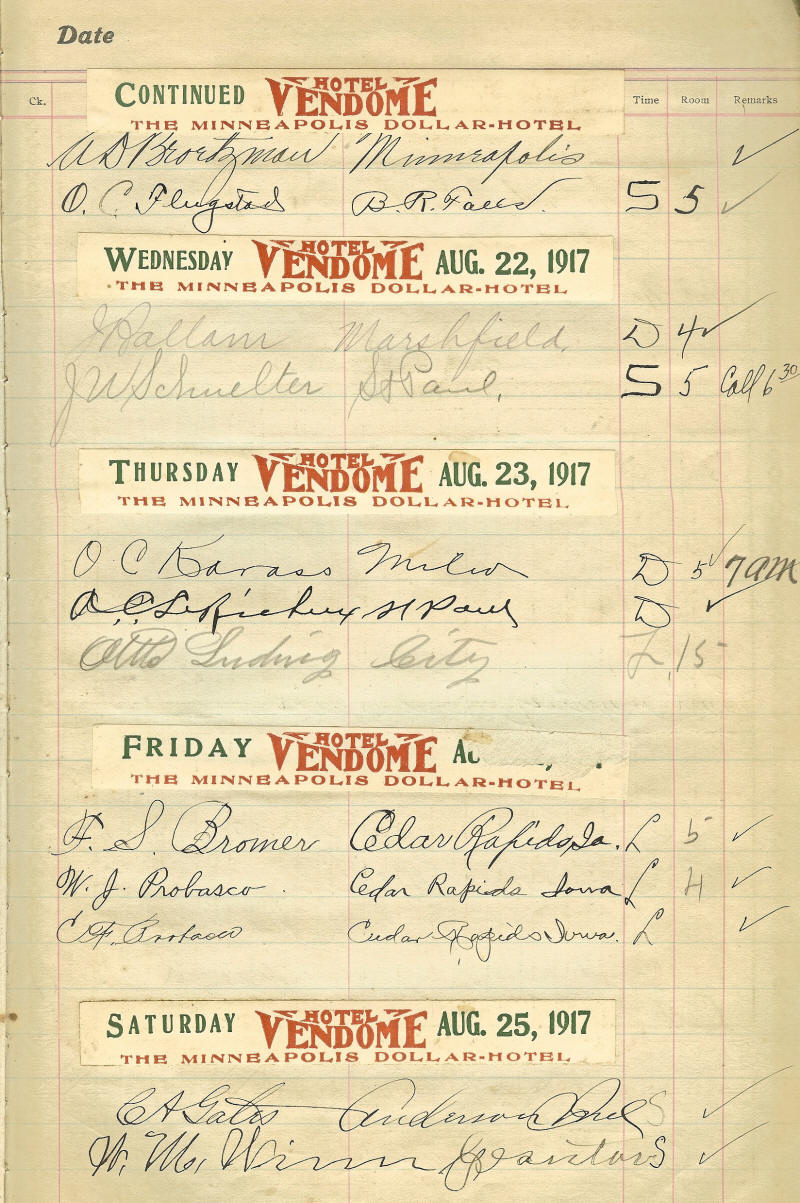 Date
Ck. Time Room Remarks
CONTINUED HOTEL VENDOME
THE MINNEAPOLIS DOLLAR-HOTEL
A D Broetzman Minneapolis ✓
O. C. Flugstad B. R. Falls. S 5 ✓
WEDNESDAY HOTEL VENDOME AUG. 22, 1917
THE MINNEAPOLIS DOLLAR-HOTEL
J Hallam Marshfield. D 4 ✓
J W Schuelter St Paul. S 5 Call 6 30
THURSDAY HOTEL VENDOME AUG. 23, 1917
THE MINNEAPOLIS DOLLAR-HOTEL
O C Karass Milw D 5 ✓ 7 am
A. C. St Paul D ✓
Otto Ludwig City L 15
FRIDAY HOTEL VENDOME
THE MINNEAPOLIS DOLLAR-HOTEL
F. S. Bromer Cedar Rapids, Ia. L 5 ✓
W. J. Probasco Cedar Rapids Iowa L 4 ✓
C. F. Probasco Cedar Rapids Iowa. L ✓
SATURDAY HOTEL VENDOME AUG. 25, 1917
THE MINNEAPOLIS DOLLAR-HOTEL
C A Gates Anderson Ind S ✓
W. M. Winn S ✓